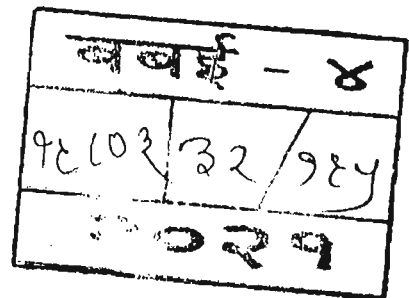 बबई - ४
१८८०२ ३२ / १९५
२०२१